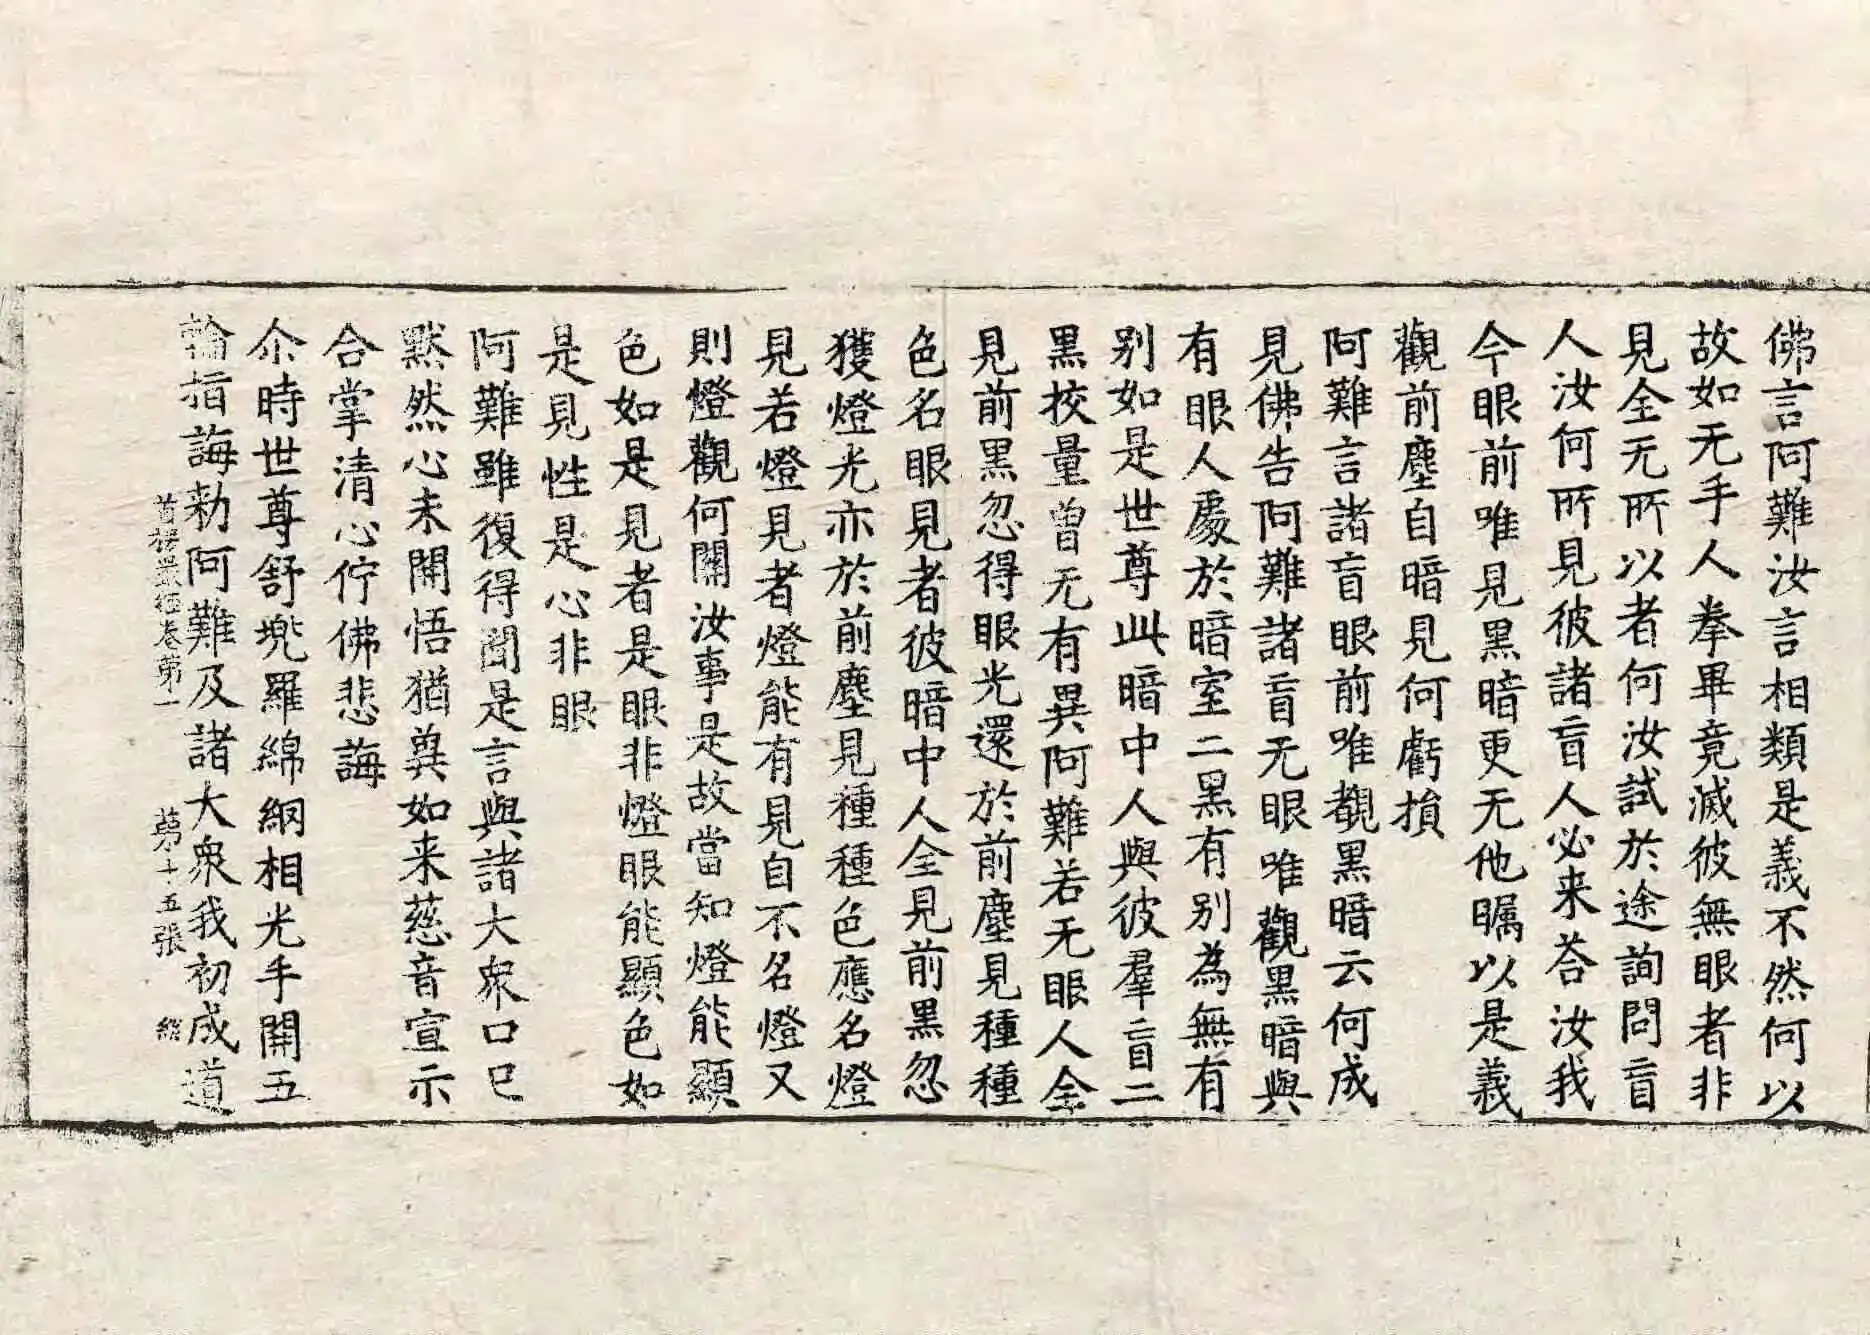 佛言阿難汝言相類是義不然何以
故如无手人拳畢竟滅彼無眼者非
見全无所以者何汝試於途詢問盲
人汝何所見彼諸盲人必来荅汝我
今眼前唯見黑暗更无他矚以是義
觀前塵自暗見何虧損
阿難言諸盲眼前唯覩黑暗云何成
見佛告阿難諸盲无眼唯觀黑暗與
有眼人處於暗室二黑有別為無有
別如是世尊此暗中人與彼羣盲二
黑校量曾无有異阿難若无眼人全
見前黑忽得眼光還於前塵見種種
色名眼見者彼暗中人全見前黑忽
獲燈光亦於前塵見種種色應名燈
見若燈見者燈能有見自不名燈又
則燈觀何關汝事是故當知燈能顯
色如是見者是眼非燈眼能顯色如
是見性是心非眼
阿難雖復得聞是言與諸大衆口已
黙然心未開悟猶兾如来慈音宣示
合掌清心佇佛悲誨
尒時世尊舒兜羅綿網相光手開五
輪指誨勑阿難及諸大衆我初成道
首楞嚴經卷第一 第十五張